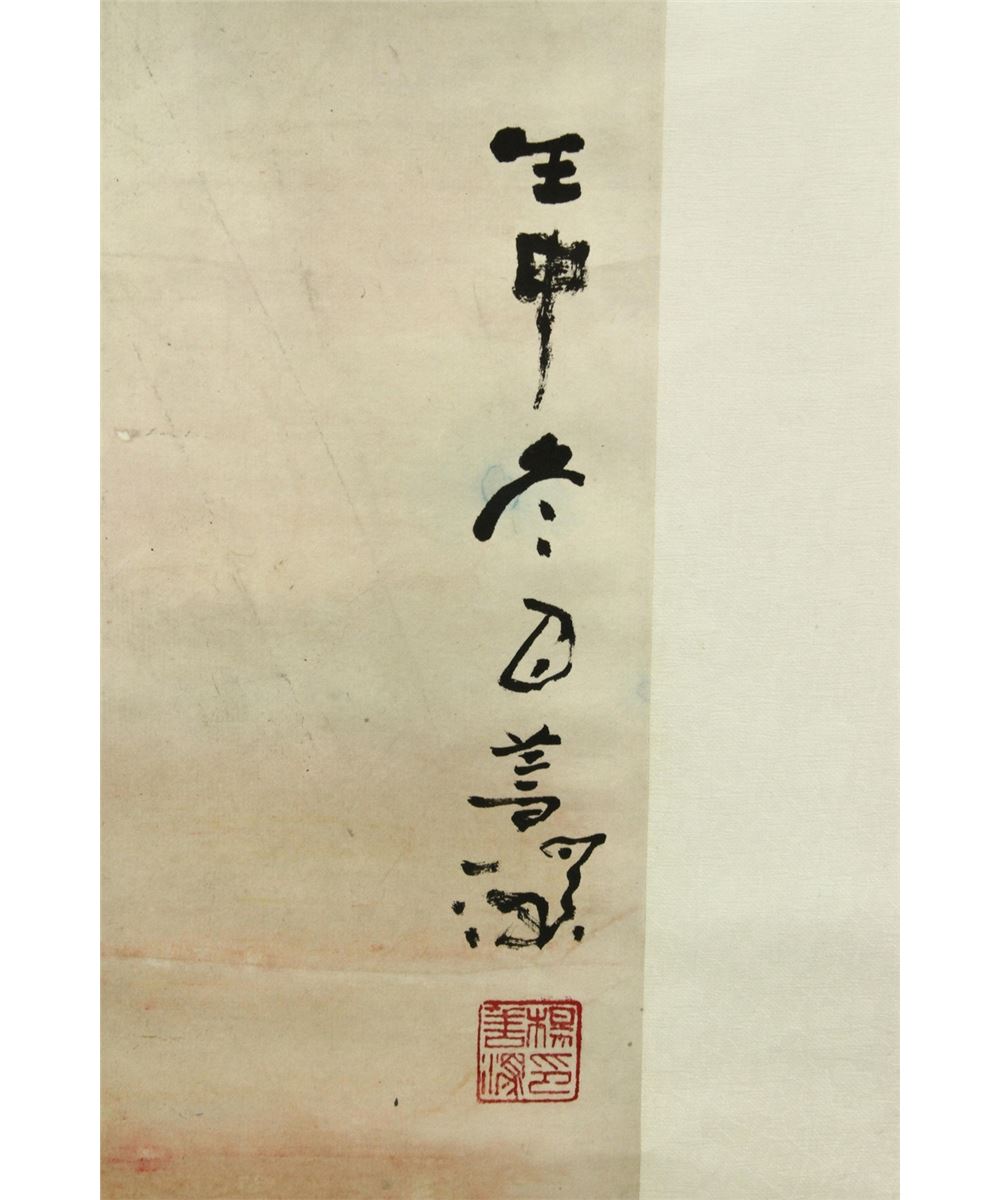 壬申冬日善深
楊印善深